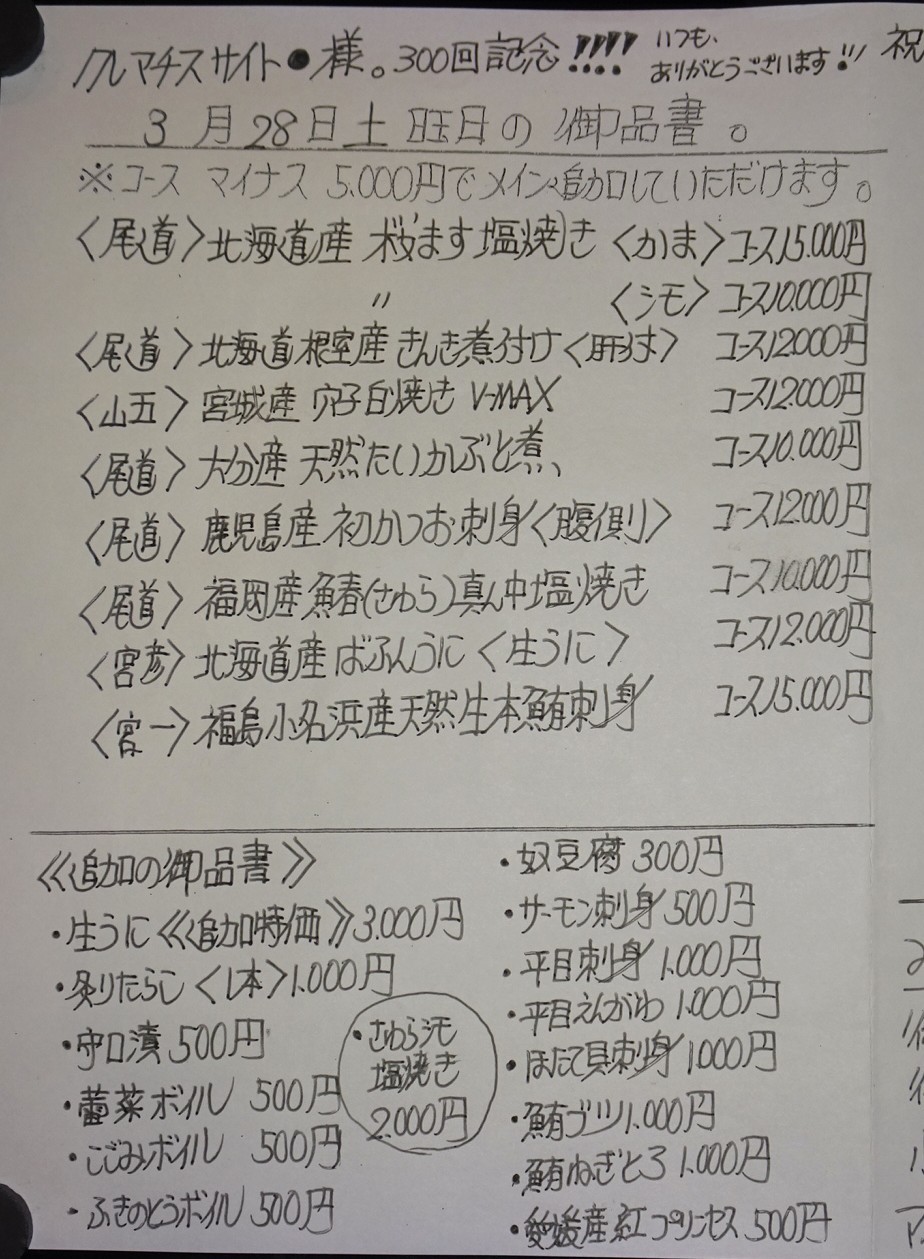 クレマチスサイト●様。300回記念!!!! いつも、
ありがとうございます!!!
3月28日土曜日の御品書。
※コース マイナス 5.000円でメイン追加していただけます。
〈尾道〉北海道産 桜ます塩焼き〈かま〉コース15.000円
〃 〈シモ〉コース10.000円
〈尾道〉北海道根室産 きんき煮付け〈肝付〉 コース12000円
〈山五〉宮城産 穴子白焼き V-MAX コース12.000円
〈尾道〉大分産 天然たいかぶと煮、 コース10.000円
〈尾道〉鹿児島産 初かつお刺身〈腹側〉 コース12.000円
〈尾道〉福岡産 鰆(さわら)真ん中塩焼き コース10.000円
〈宮彦〉北海道産ばふんうに〈生うに〉 コース12.000円
〈宮一〉福島小名浜産天然生本鮪刺身 コース15.000円
《追加の御品書》
・生うに《追加特価》3.000円
・炙りたらこ〈1本〉1.000円
・守口漬 500円
・蕾菜ボイル 500円
・こごみボイル 500円
・ふきのとうボイル 500円
・さわらシモ
塩焼き
2.000円
・奴豆腐 300円
・サーモン刺身 500円
・平目刺身 1.000円
・平目えんがわ 1.000円
・ほたて貝刺身 1000円
・鮪ブツ 1.000円
・鮪ねぎとろ 1.000円
・愛媛産紅プリンセス 500円
祝